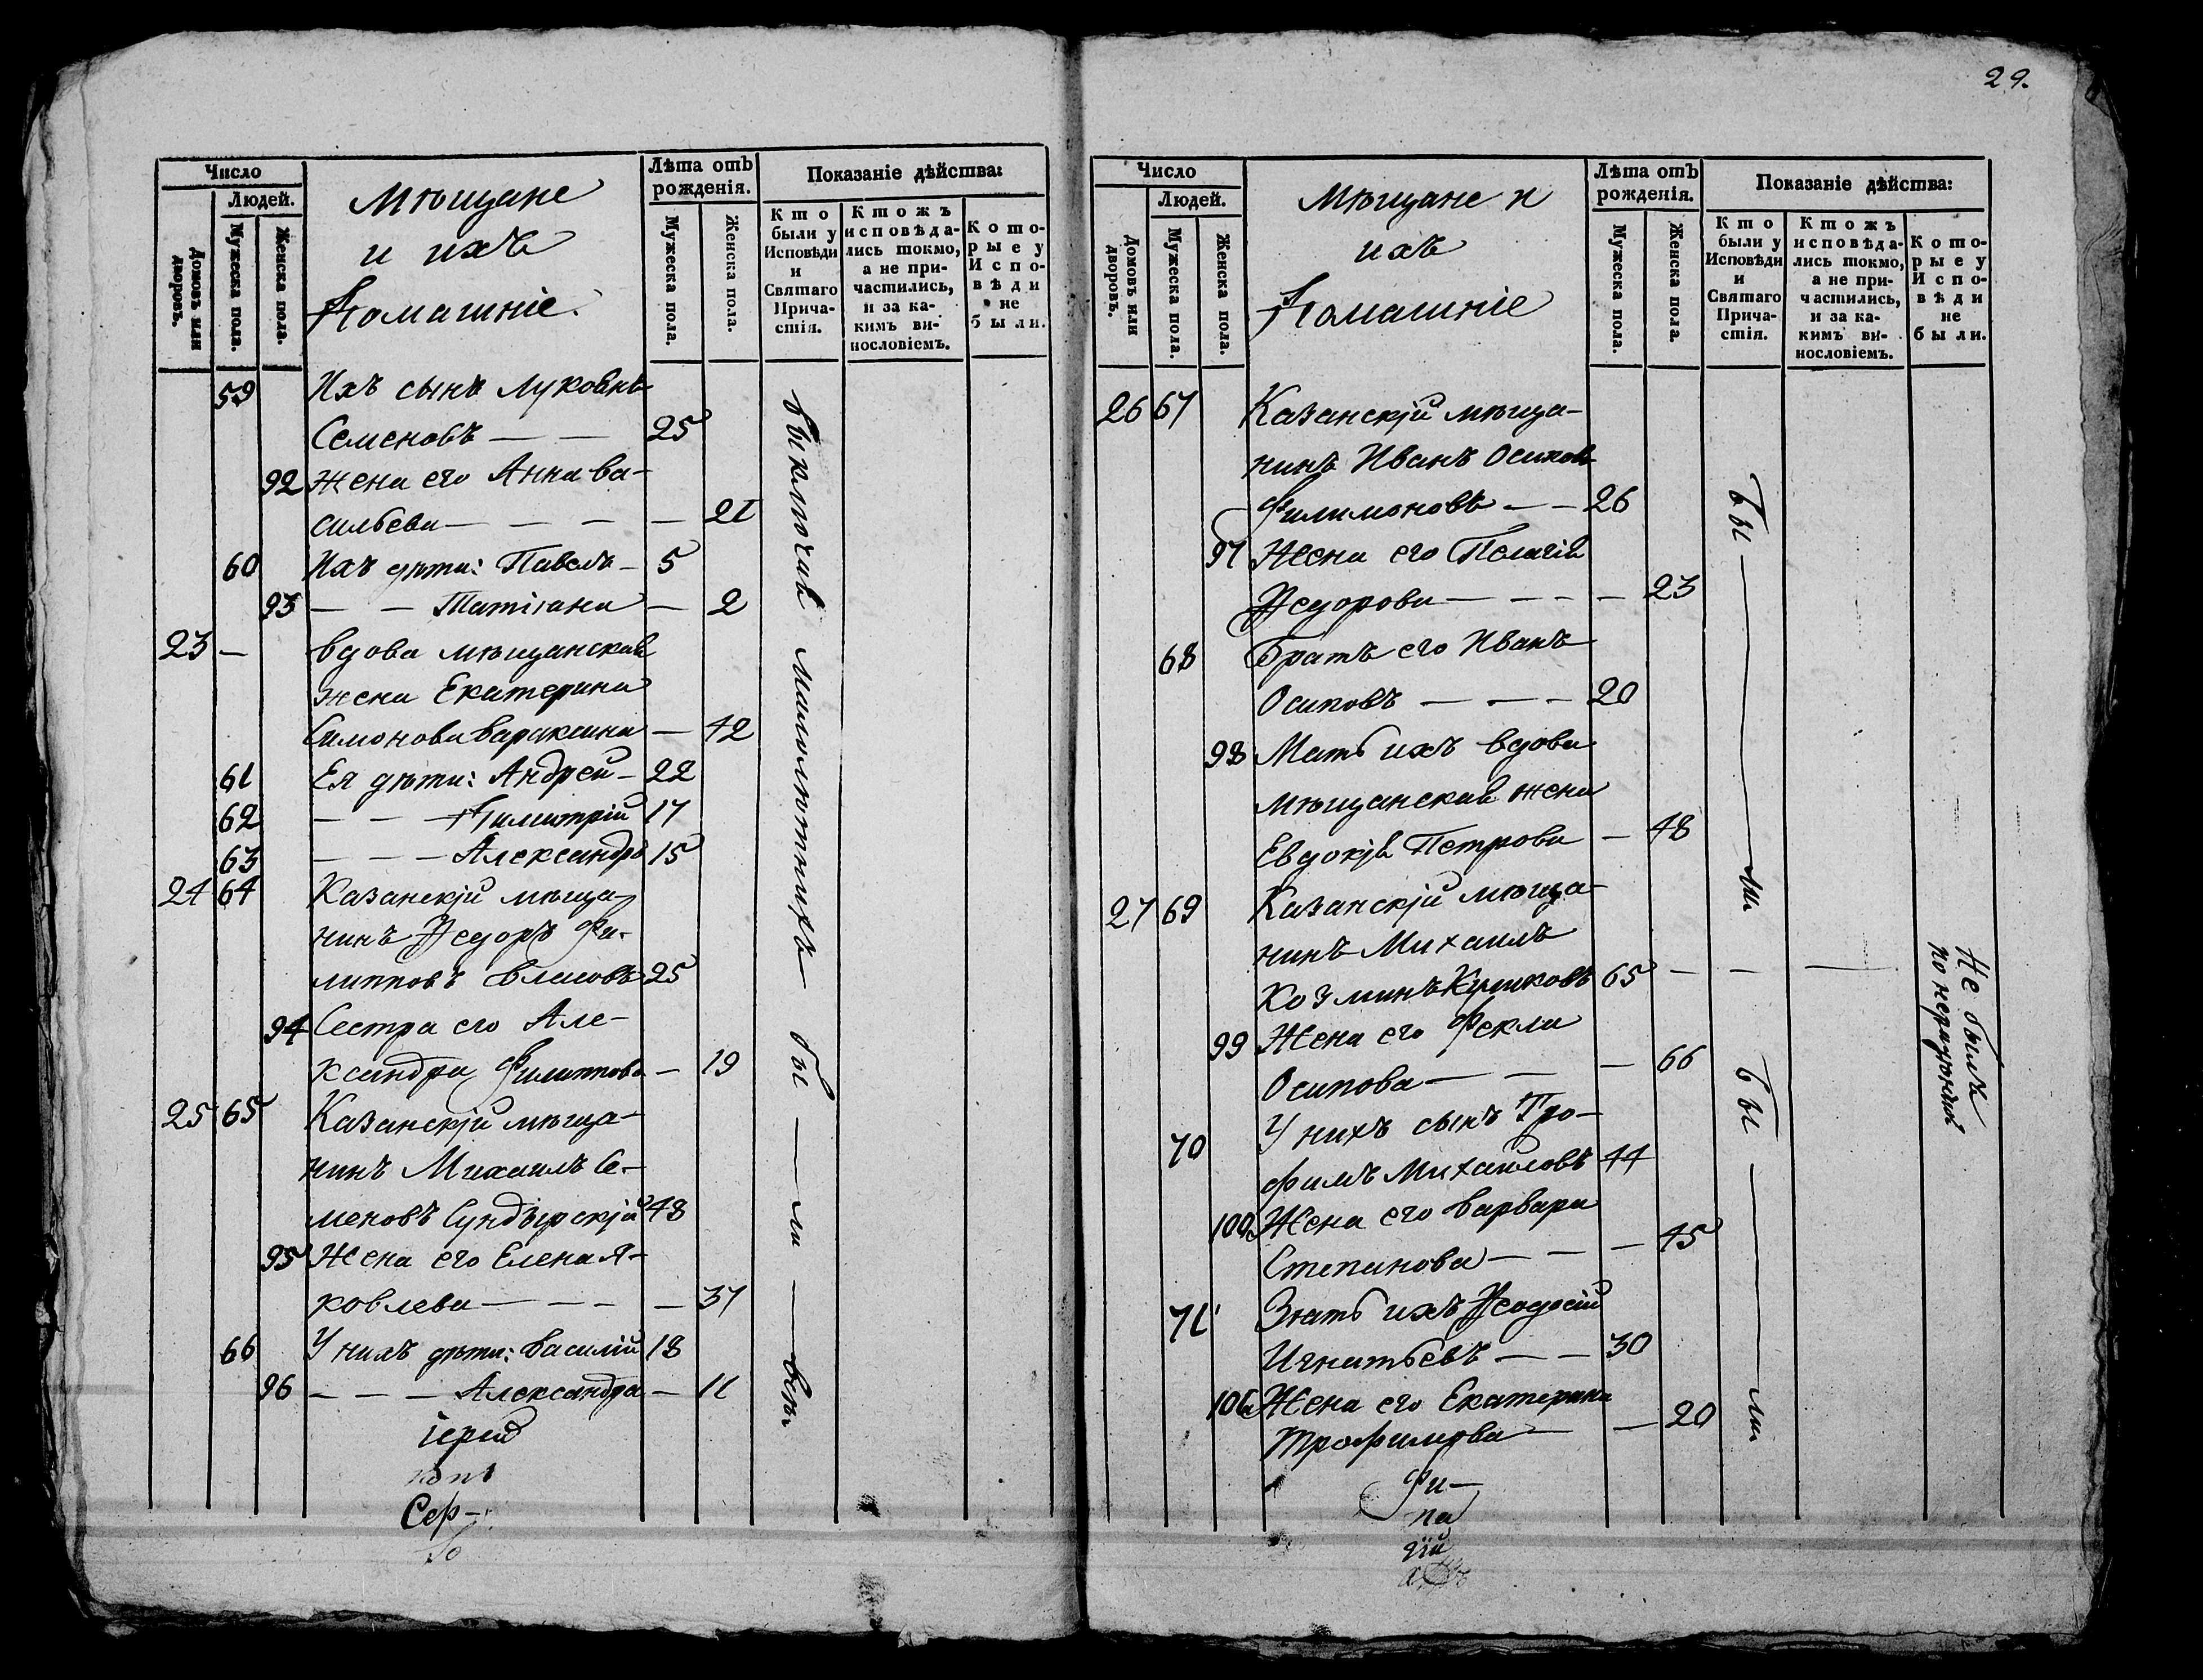 29.
Число
Людей.
Домовъ или дворовъ.
Мужеска пола.
Женска пола.
Мѣщане
и ихъ
Домашніе.
Лѣта отъ рожденія.
Мужеска пола.
Женска пола.
Показаніе дѣйства:
Кто были у Исповѣди и Святаго Причастія.
Ктожъ исповѣдались токмо, а не причастились, и за какимъ винословіемъ.
Которые у Исповѣди не были.
59 Ихъ сынъ
Семеновъ — — 25
92 Жена его Анна Ва-
сильева — — — — 21
60 Ихъ дѣти: Павелъ — 5
93 — — Татіана — 2
23 — Вдова мѣщанская
жена Екатерина
Симонова Вараксина — 42
61 Ея дѣти: Андрей — 22
62 — — — Димитрій 17
63 — — — Александръ 15
24 64 Казанскій мѣща-
нинъ Ѳедоръ Фи-
липповъ Власовъ 25
94 Сестра его Але-
ксандра Филиппова — 19
25 65 Казанскій мѣща-
нинъ Михаилъ Се-
меновъ Сундырскій 48
95 Жена его Елена Я-
ковлева — — — — 37
66 У нихъ дѣти: Василій 18
96 — — — Александра — 11
Выключая малолѣтнихъ — бы — ли — всѣ
Іерей
Сер-
Число
Людей.
Домовъ или дворовъ.
Мужеска пола.
Женска пола.
Мѣщане и
ихъ
Домашніе
Лѣта отъ рожденія.
Мужеска пола.
Женска пола.
Показаніе дѣйства:
Кто были у Исповѣди и Святаго Причастія.
Ктожъ исповѣдались токмо, а не причастились, и за какимъ винословіемъ.
Которые у Исповѣди не были.
26 67 Казанскій мѣща-
нинъ Иванъ Осиповъ
Филимоновъ — — 26
97 Жена его Пелагія
Ѳедорова — — — — 23
68 Братъ его Иванъ
Осиповъ — — — 20
98 Мать ихъ вдова
мѣщанская жена
Евдокія Петрова — 48
27 69 Казанскій мѣща-
нинъ Михаилъ
Козминъ 65 — — —
99 Жена его Фекла
Осипова — — — 66
70 У нихъ сынъ Тро-
фимъ Михайловъ 44
100 Жена его Варвара
Степанова — — — 45
71 Зять ихъ Ѳеодосій
Игнатьевъ — — 30
101 Жена его Екатерина
Трофимова — — 20
Бы — ли
Бы — ли
Не былъ
по нерадѣнію
Фи-
па
гій